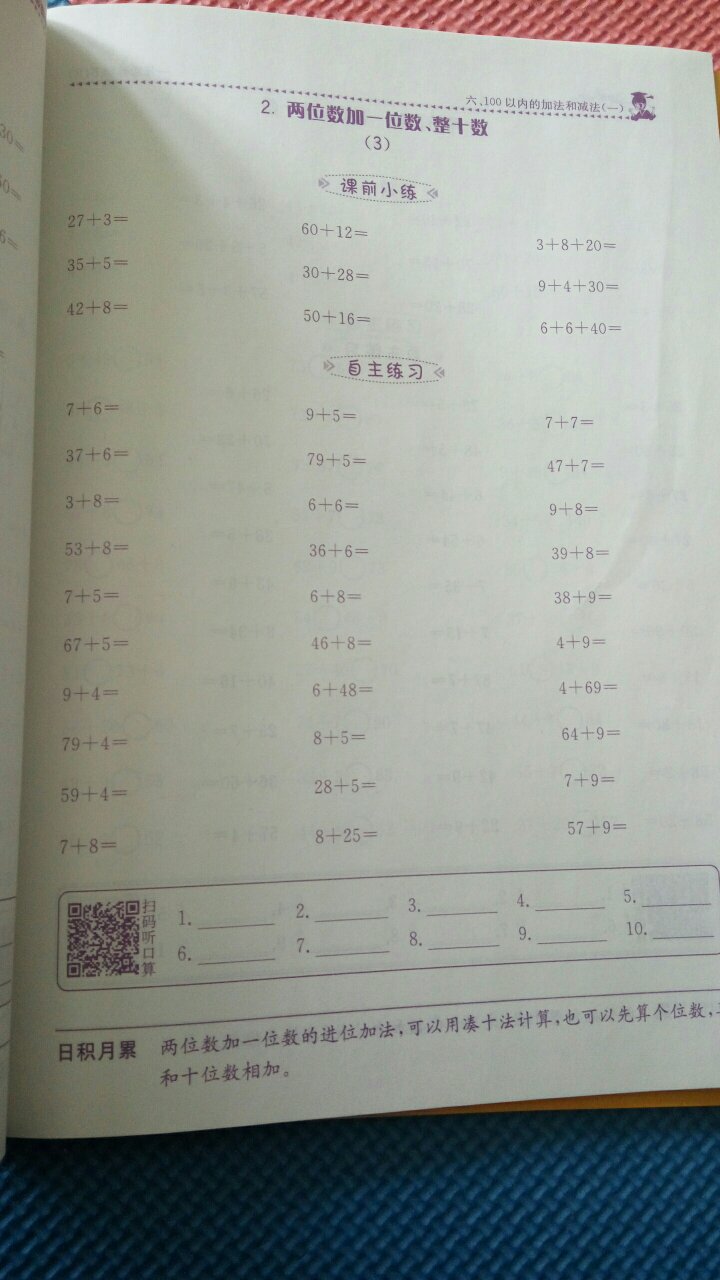 六、100以内的加法和减法(一)
2. 两位数加一位数、整十数
(3)
课前小练
27+3= 60+12= 3+8+20=
35+5= 30+28= 9+4+30=
42+8= 50+16= 6+6+40=
自主练习
7+6= 9+5= 7+7=
37+6= 79+5= 47+7=
3+8= 6+6= 9+8=
53+8= 36+6= 39+8=
7+5= 6+8= 38+9=
67+5= 46+8= 4+9=
9+4= 6+48= 4+69=
79+4= 8+5= 64+9=
59+4= 28+5= 7+9=
7+8= 8+25= 57+9=
扫码听口算
1. 2. 3. 4. 5.
6. 7. 8. 9. 10.
日积月累 两位数加一位数的进位加法,可以用凑十法计算,也可以先算个位数,
和十位数相加。
30=
50=
6=